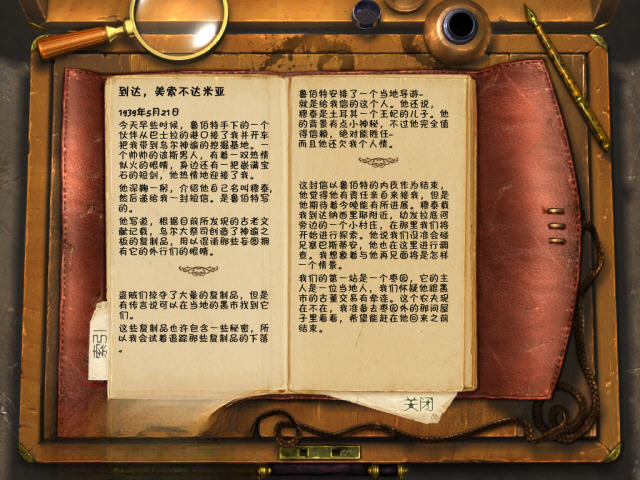 到达，美索不达米亚
1939年5月21日
今天早些时候，鲁伯特手下的一个
伙伴从巴士拉的港口接了我并开车
把我带到乌尔神谕的挖掘基地。一
个帅帅的波斯男人，有着一双热情
似火的眼睛，身边还有一把嵌满宝
石的短剑，他热情地迎接了我。
他深鞠一躬，介绍他自己名叫穆泰，
然后递给我一封短信。是鲁伯特写
的。
他写道，根据目前所发现的古老文
献记载，乌尔大祭司创造了神谕之
板的复制品，用以混淆那些妄图拥
有它的外行们的眼睛。
盗贼们掠夺了大量的复制品，但是
有传言说可以在当地的黑市找到它
们。
这些复制品也许包含一些秘密，所
以我会试着追踪那些复制品的下落
。
鲁伯特安排了一个当地导游-
就是给我信的这个人。他还说，
穆泰是土耳其一个王妃的儿子。他
的背景有点小神秘，不过他完全值
得信赖，绝对能胜任-
而且他还欠我个人情。
这封信以鲁伯特的内疚作为结束，
他觉得他有责任亲自来接我，但是
他期待着今晚能有所进展。穆泰载
我到达纳西里耶附近，幼发拉底河
旁边的一个小村庄，在那里我们将
开始进行探索。他说我们没准会碰
见塞巴斯蒂安，他也在这里进行调
查。我想象着与他再见面将是怎样
一个情景。
我们的第一站是一个枣园，它的主
人是一位当地人，我们怀疑他跟黑
市的古董交易有牵连。这个农夫现
在不在，我准备去枣园外的那间屋
子里看看，希望能赶在他回来之前
结束。
索引
关闭